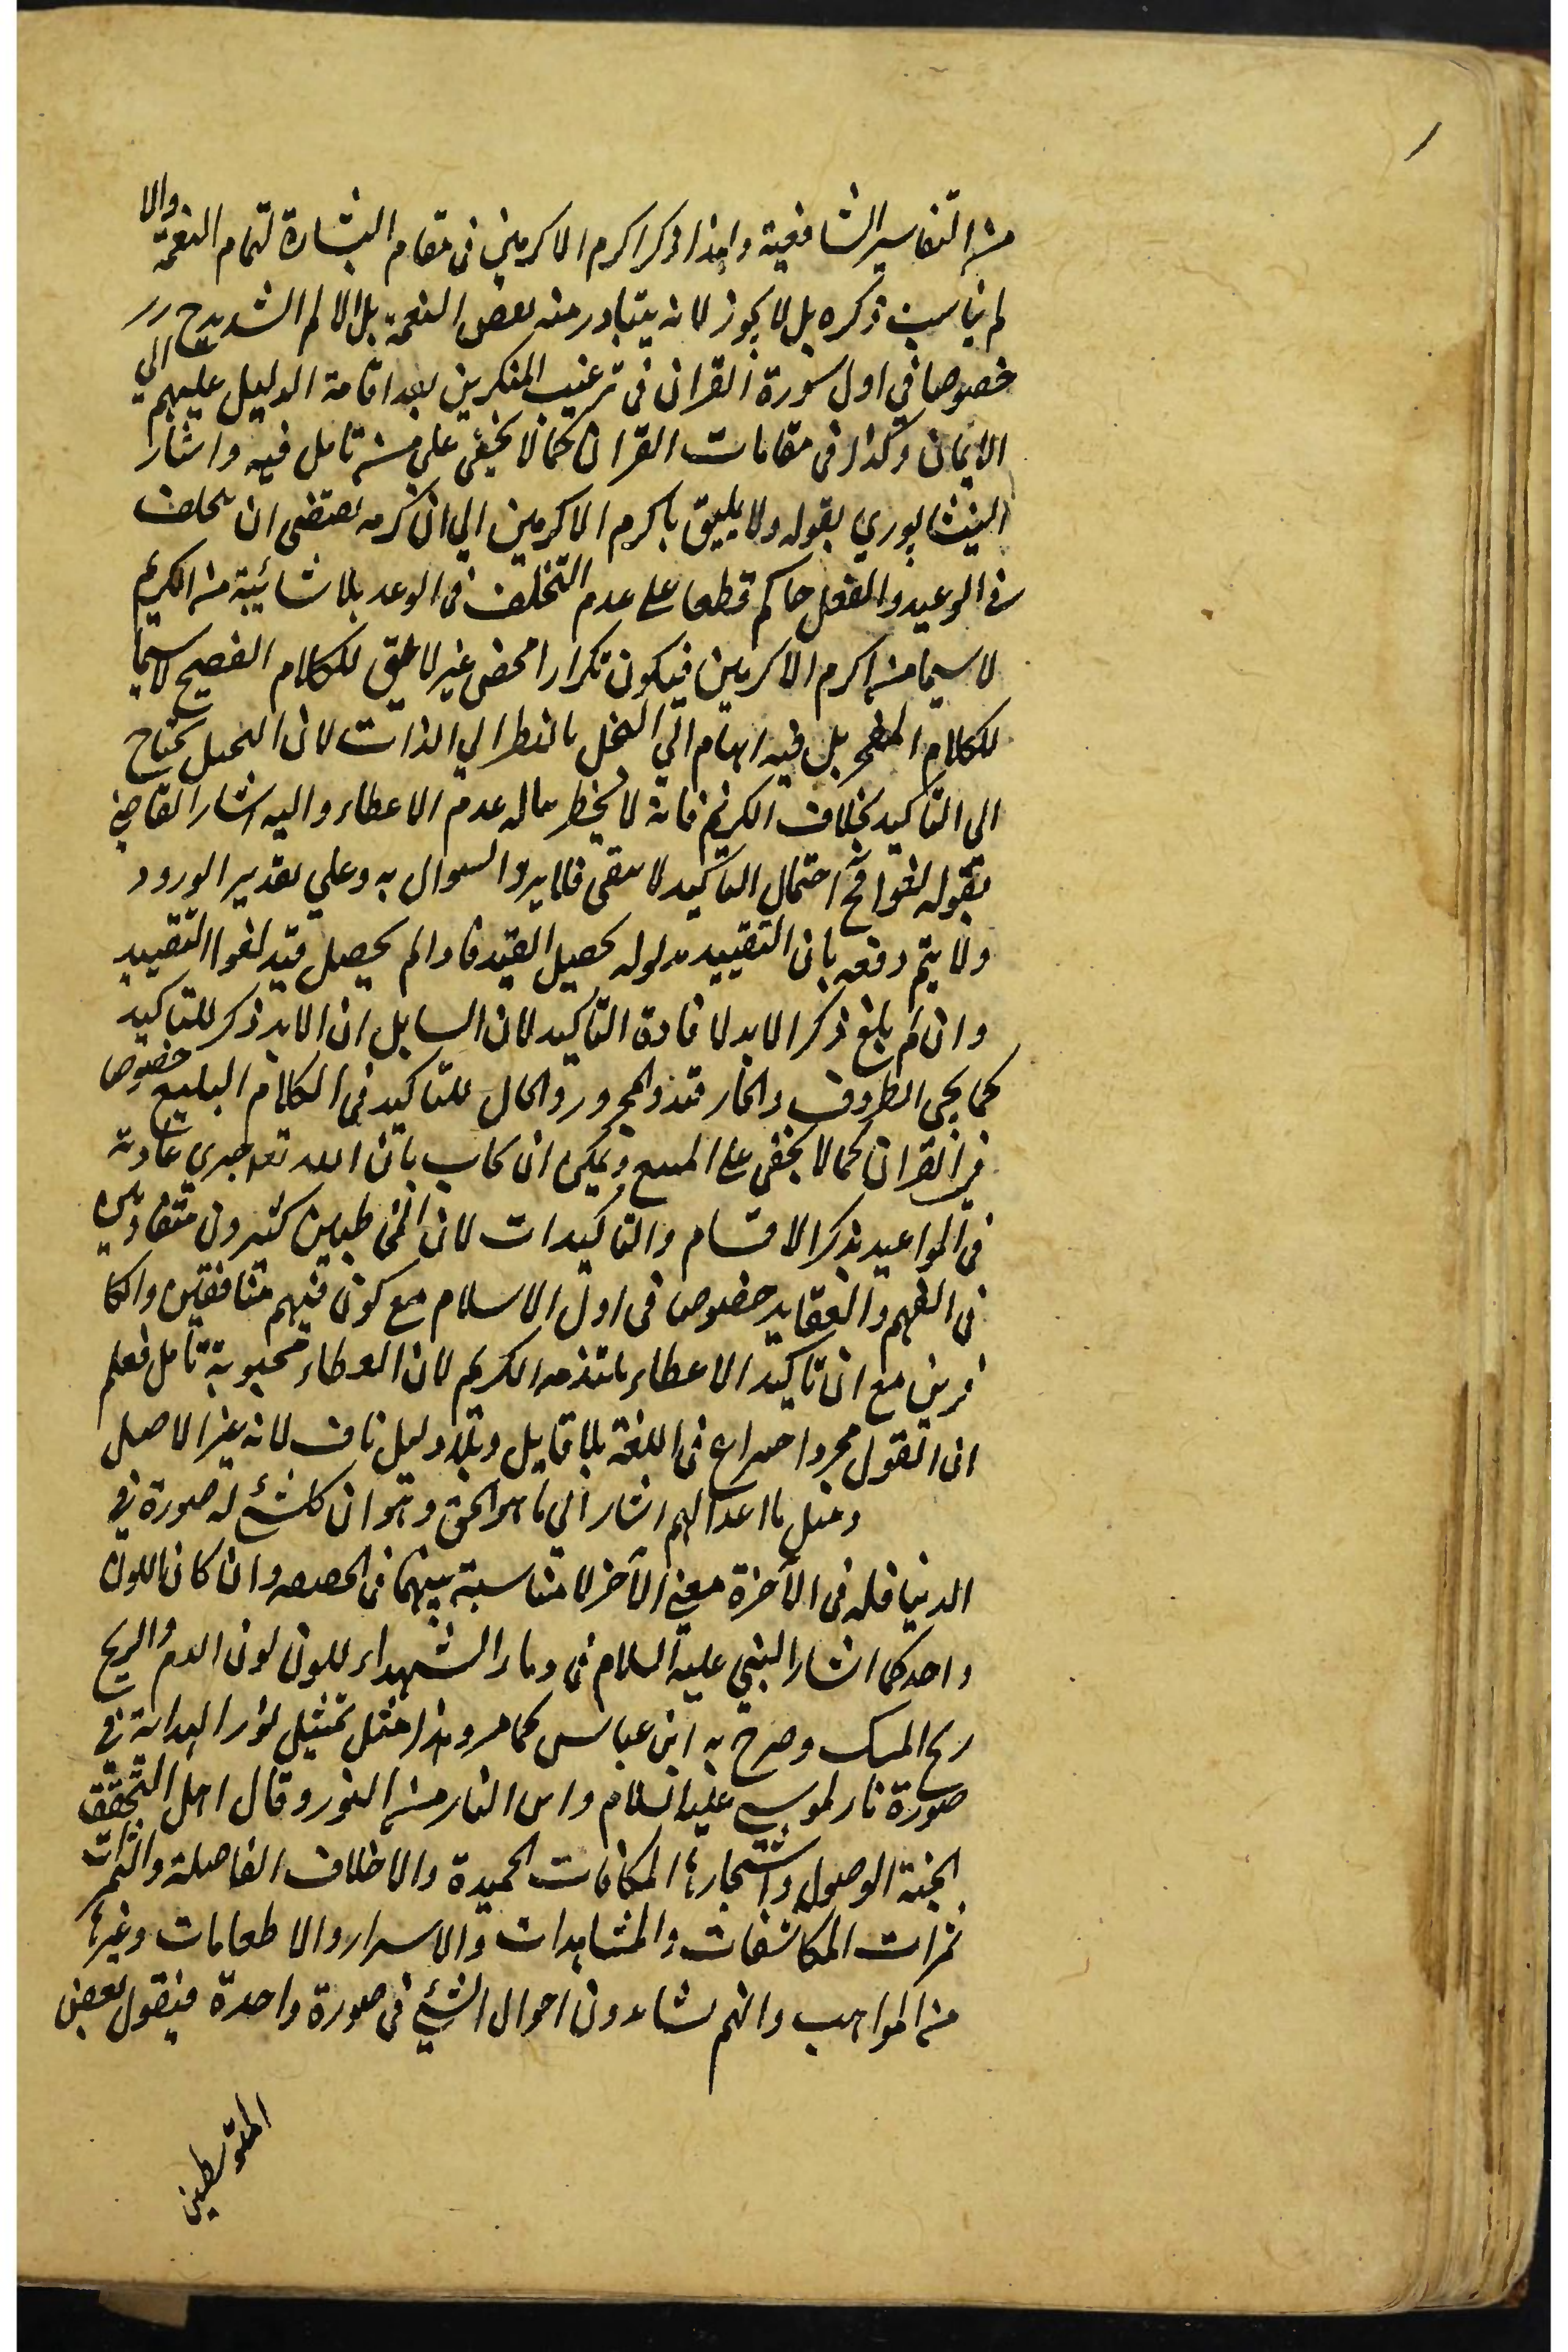 من التفاسير الشافعية واهذا ذكر اكرم الاكرمين فى مقام البشارة لتمام النعمة والا
لم يناسب ذكره بل لا يجوز لانه يتبادر منه بعض النعمة بل الالم الشديد ح
خصوصا في اول سورة القران فى ترغيب المنكرين بعد اقامة الدليل عليهم الي
الايمان وكذا فى مقامات القران كما لا يخفى على من تامل فيه واشار
النيشابوري بقوله ولا يليق باكرم الاكرمين الي ان كرمه يقتضى ان يخلف
فى الوعيد والعقل حاكم قطعا على عدم التخلف فى الوعد بلا شائبة من الكريم
لا سيما من اكرم الاكرمين فيكون تكرارا محض غير لايق للكلام الفصيح لا سيما
للكلام المعجز بل فيه ايهام الي البخل بالنظر الي الذات لان البخيل يحتاج
الى التاكيد بخلاف الكريم فانه لا يخطر بباله عدم الاعطاء واليه اشار القاضي
بقوله لغوا فح احتمال التاكيد لا يبقى فلا يرد السوال به وعلي تقدير الورود
ولا يتم دفعه بان التقييد مدلوله تحصيل القيد فاذا لم يحصل قيد لغوا التقييد
وان لم يلغ ذكر الابد لافادة التاكيد لان السايل ان الابد ذكر للتاكيد
كما يجى الظروف والجار والمجرور والحال للتاكيد فى الكلام البليغ خصوص
في القران كما لا يخفى على المتتبع ويمكن ان يجاب بان الله تعه جري عادته
فى المواعيد بذكر الاقسام والتاكيدات لان المخاطبين كثيرون متفاوتين
فى الفهم والعقايد خصوص فى اول الاسلام مع كون فيهم منافقين والكا
فرين مع ان تاكيد الاعطاء يلتذ به الكريم لان العطاء محبوبة تامل فعلم
ان القول مجرد اختراع فى اللغة بلا قايل وبلا دليل ناف لانه غير الاصل
ومثل ما اعد الهم اشار الي ما هو الحق وهو ان كل شئ له صورة في
الدنيا فله فى الآخرة معني الآخر لا مناسبة بينهما فى الحقيقه وان كان اللون
واحد كما اشار النبي عليه السلام فى دماء الشهداء للون لون الدم والريح
ريح المسك وصرح به ابن عباس كما مر وهذا مثل تمثيل نور الهداية في
صورة نار لموسي عليه السلام واين النار من النور وقال اهل التحقيق
الجنة الوصول واشجارها المكافات الحميدة والاخلاق الفاضلة والثمرات
ثمرات المكاشفات والمشاهدات والاسرار والاطعامات وغيرها
من المواهب وانهم يشاهدون احوال الشئ فى صورة واحدة فيقول بعض
المتوسطين